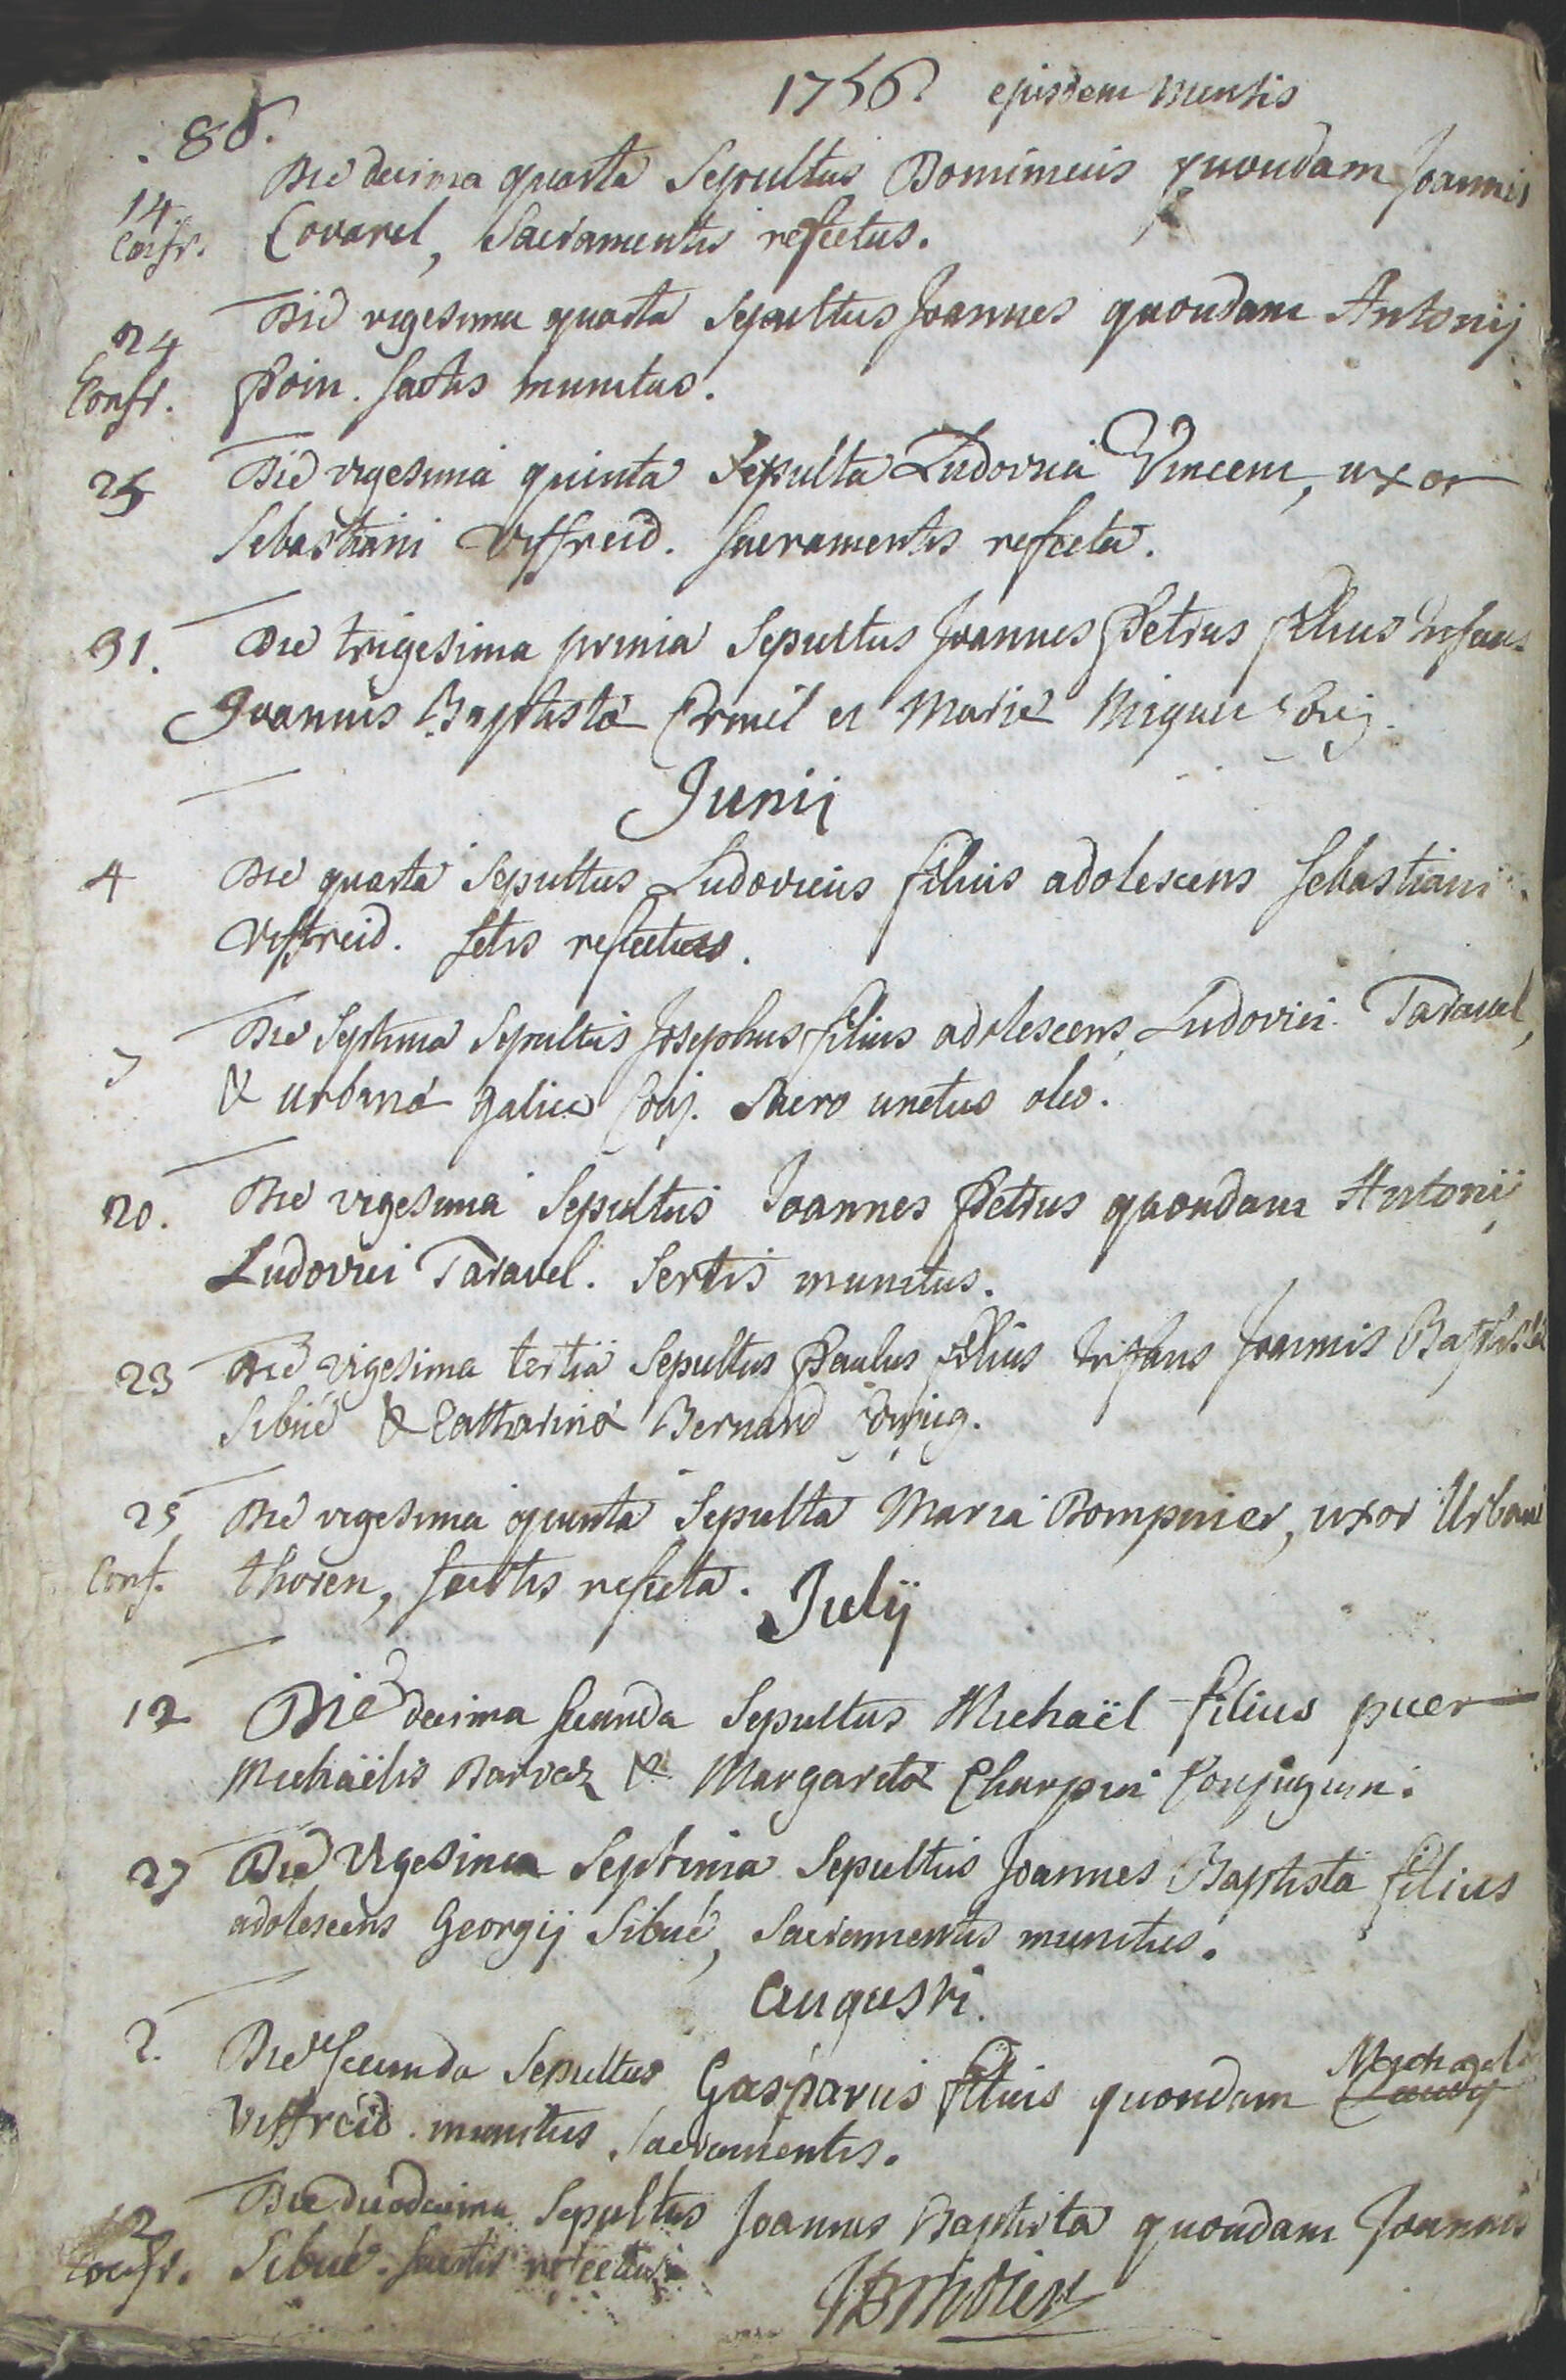 1756. ejusdem mensis
. 88.
14. Die decima quarta Sepultus Dominicus quondam Joannis
Confr. Covarel, Sacramentis refectus.
24 Die vigesima quarta Sepultus Joannes quondam Antonij
Confr. Poin. sactis munitus.
25 Die vigesima quinta Sepulta Ludovica Vincent, uxor
Sebastiani Viffreid. sacramentis refecta.
31. Die trigesima prima Sepultus Joannes Petrus filius infans
Joannis Baptistæ Ermel et Mariæ Miquet Conj.
Junij
4 Die quarta Sepultus Ludovicus filius adolescens Sebastiani
Viffreid. sctis refectus.
7 Die Septima Sepultus Josephus filius adolescens Ludovici Taravel,
& urbanæ Galice Conj. Sacro unctus oleo.
20. Die vigesima Sepultus Joannes Petrus quondam Antonij
Ludovici Taravel. Sertis munitus.
23 Die vigesima tertia Sepultus Paulus filius infans Joannis Baptistæ
Sibué & Catharinæ Bernard Conjug.
25 Die vigesima quinta Sepulta Maria Rompnier, uxor Urbani
Conf. thoren, sactis refecta.
Julij
12 Die decima secunda Sepultus Michaël filius puer
Michaëlis Barvaz & Margaretæ Charpin Conjugum.
27 Die vigesima Septima Sepultus Joannes Baptista filius
adolescens Georgij Sibué, Sacramentis munitus.
Augusti.
2. Die Secunda Sepultus Gasparus filius quondam Michael
Viffreid. munitus Sacramentis.
12 Die duodecima Sepultus Joannes Baptista quondam Joannis
Confr. Sibué. sactis refectus.